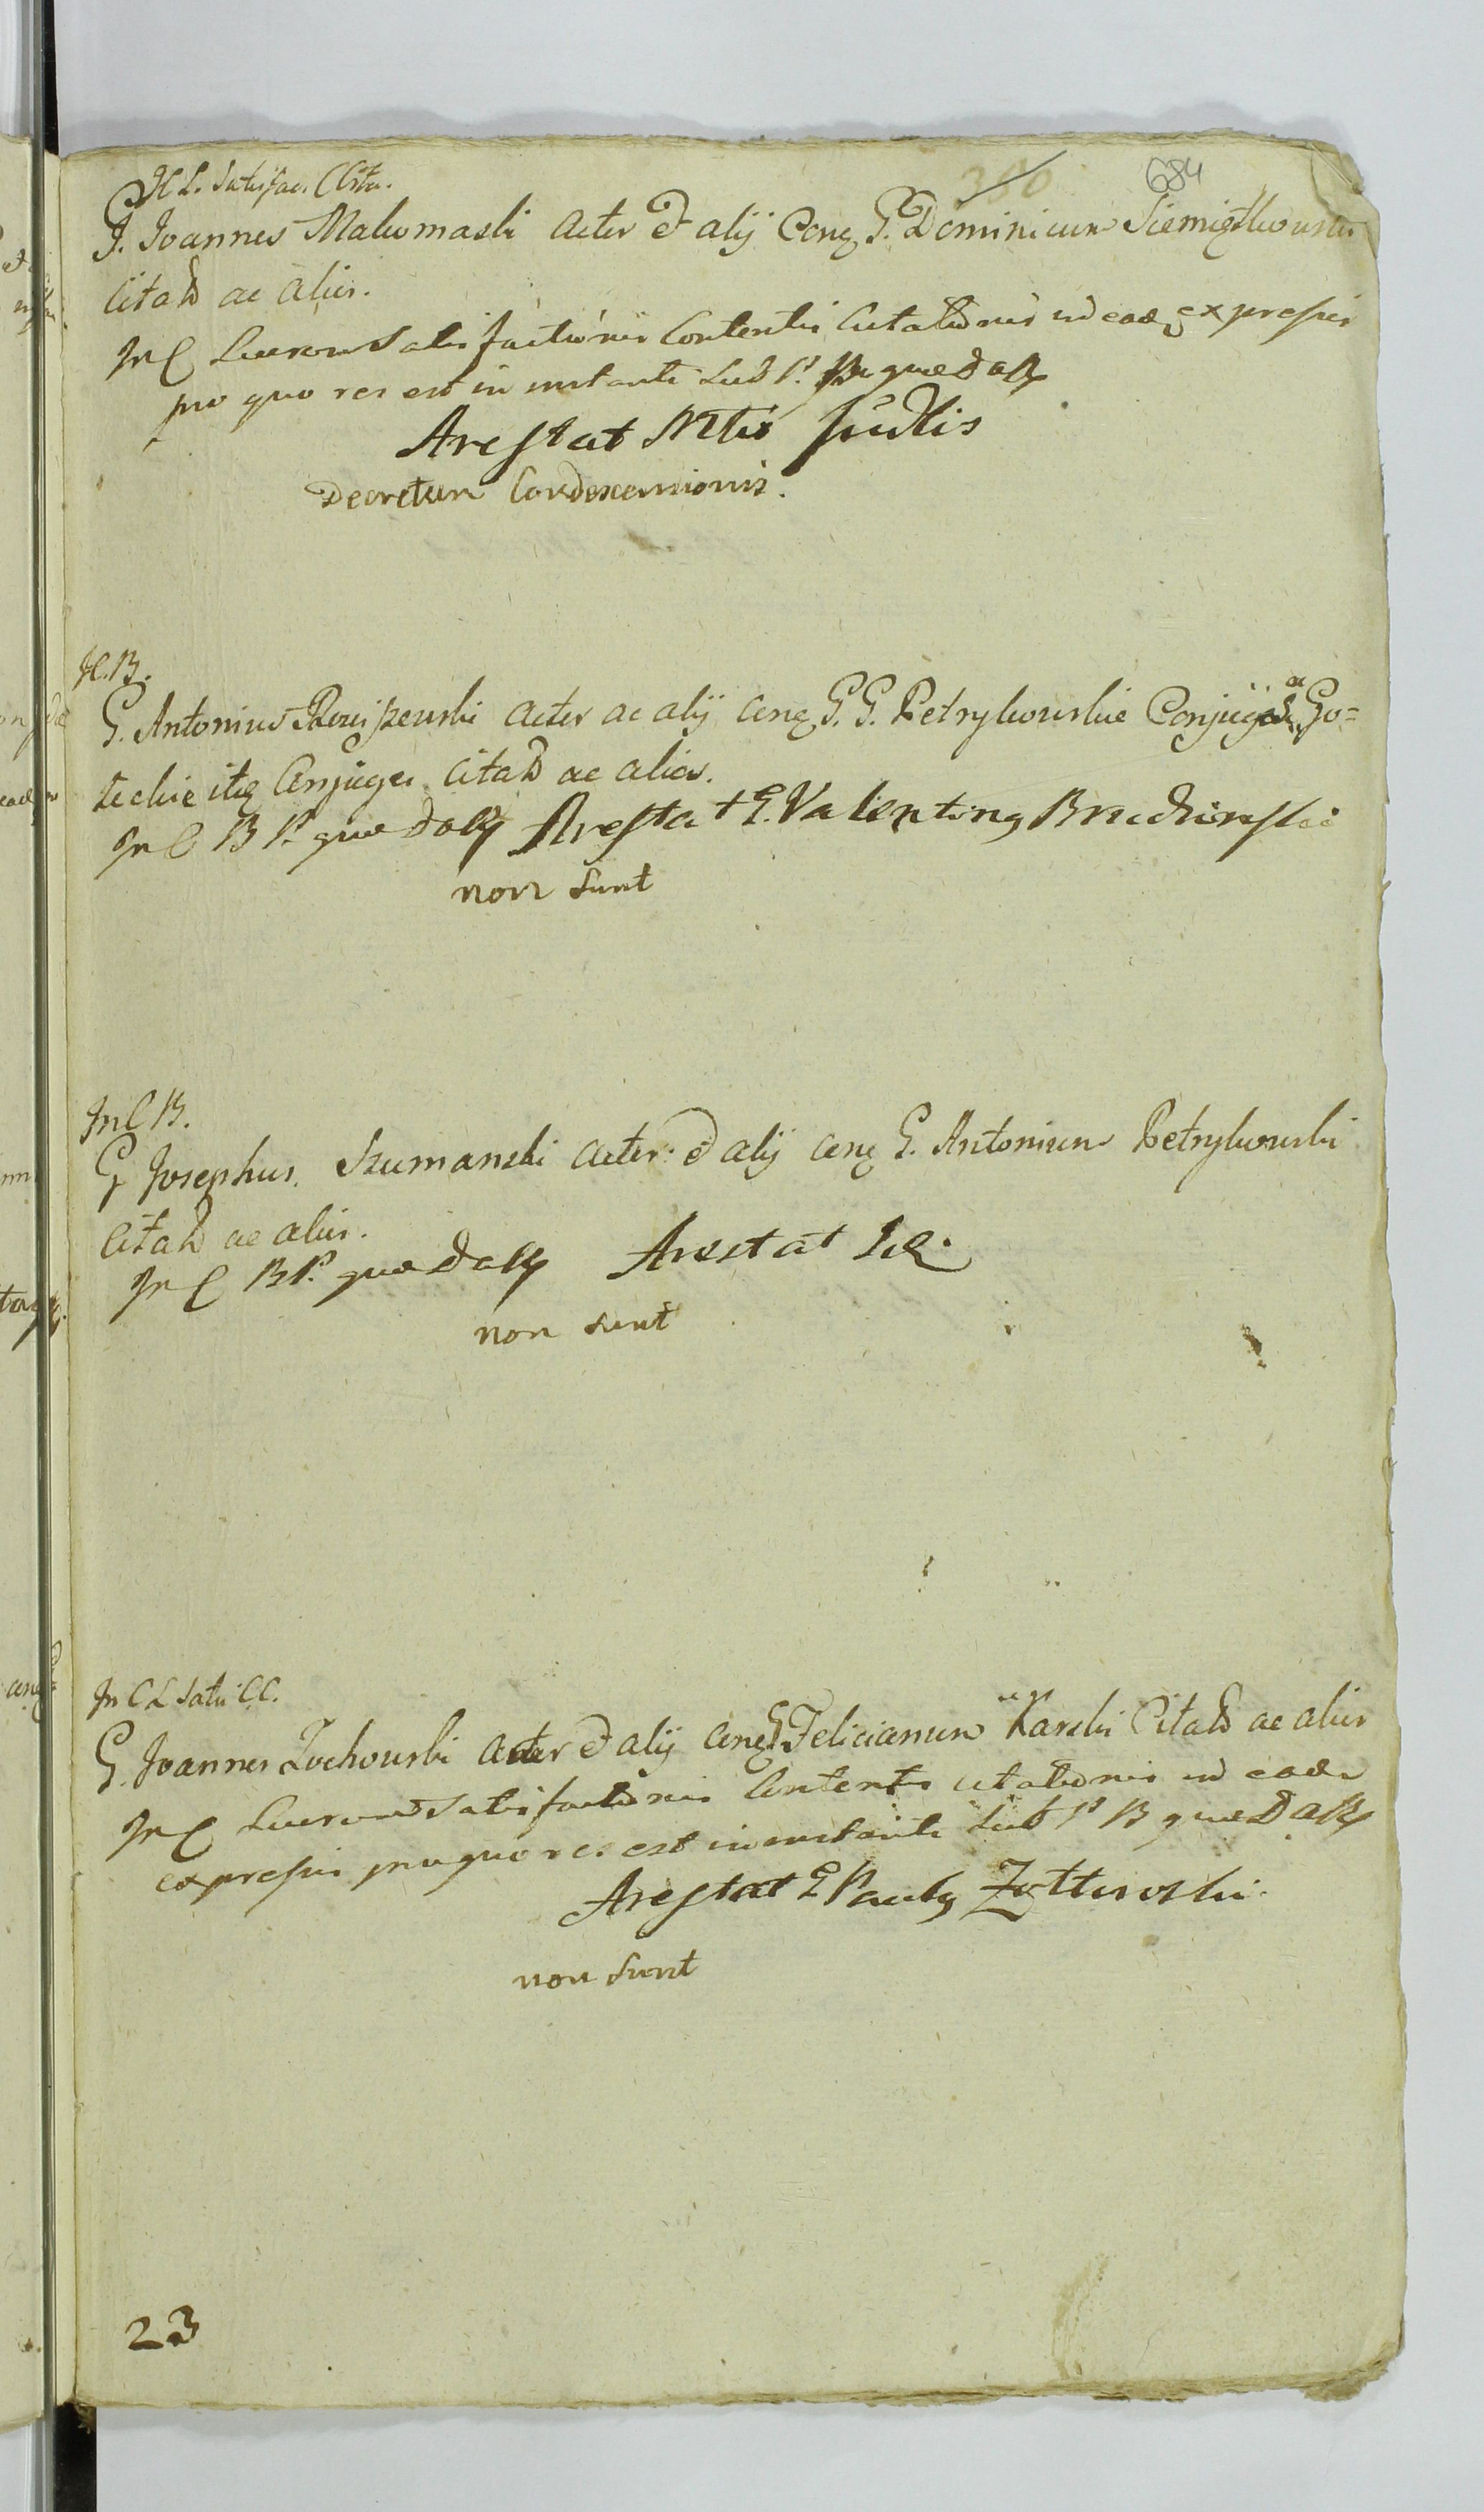 684
JCL. Satisfac. CCita.
G. Joannes Makomaski Acter et alij Conq G. Dominicum Siemiątkowski
Citat ac alius.
In C Lucrorum Satisfactionis Contentis Citationis in eadē expressis
pro quo res est in instanti sub P. B quae daB
Arestat Mtis Judlis
Decretum Condescensionis.
JC.B.
G. Antonius Acter ac alij Conq G. G. Petrykowskie Conjuges & Go=
teckie itq Conjuges Citatō ac alios.
In C B P. quae daB Arestat G. Valentinq Brudzinski
non sunt
In C B.
G Josephus Szumanski Acter et alij Conq G. Antonium Petrykowski
Citatō ac alius.
In C B P. quae daB Arestat Id.
non sunt
In C L Satis CC.
G. Joannes Zochowski Acter et alij Conq G Felicianum Karski Citatō ac alius
In C Lucrorum Satisfactionis Contentis citationis in eadē
expressis pro quo res est in instanti sub P B quae daB
Arestat G Paulq Zołtowski
non sunt
23